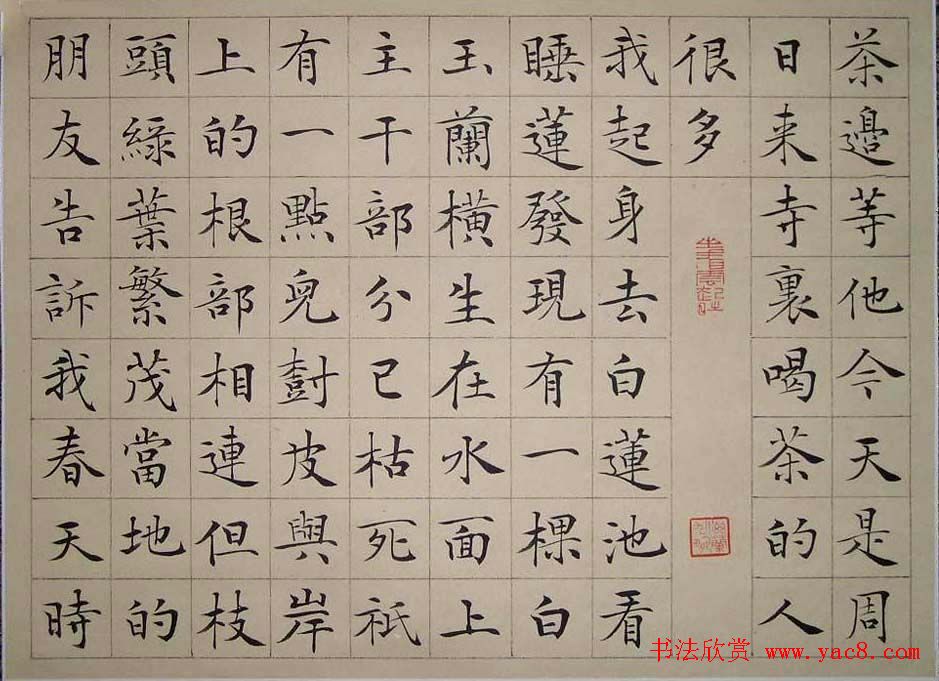 茶邉等他今天是周
日来寺裏喝茶的人
很多
我起身去白蓮池看
睡蓮發現有一棵白
玉蘭橫生在水面上
主干部分已枯死祇
有一點兒樹皮與岸
上的根部相連但枝
頭綠葉繁茂當地的
朋友告訴我春天時
书法欣赏 www.yac8.com